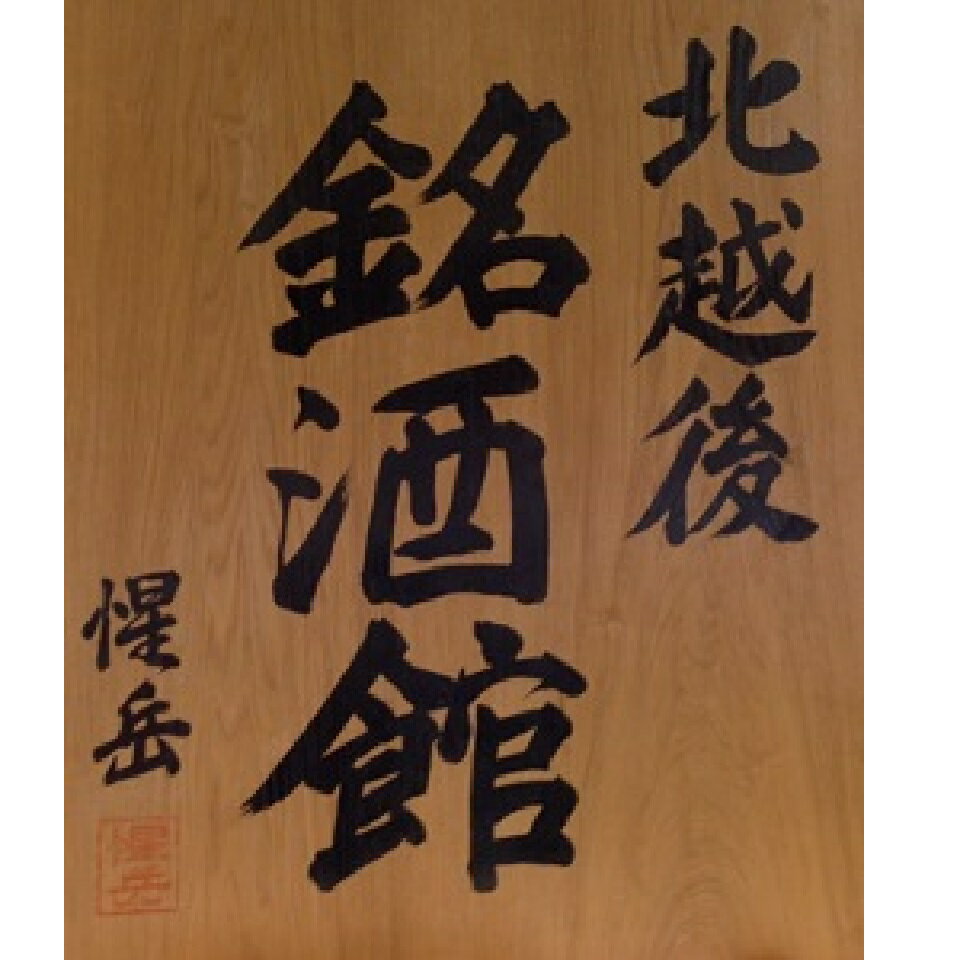 北越後
銘酒館
惺岳
惺岳